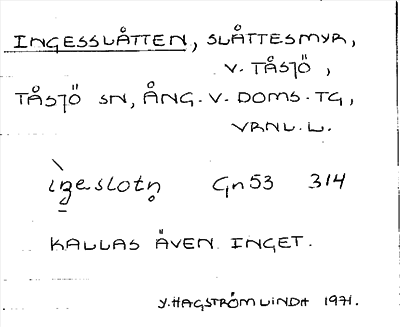 INGESSLÅTTEN, SLÅTTESMYR,
V. TÅSJÖ,
TÅSJÖ SN, ÅNG. V. DOMS. TG,
VRNL. L.
ìgeslotn̥ Gn53 314
KALLAS ÄVEN INGET.
Y. HAGSTRÖM LINDH 1971.